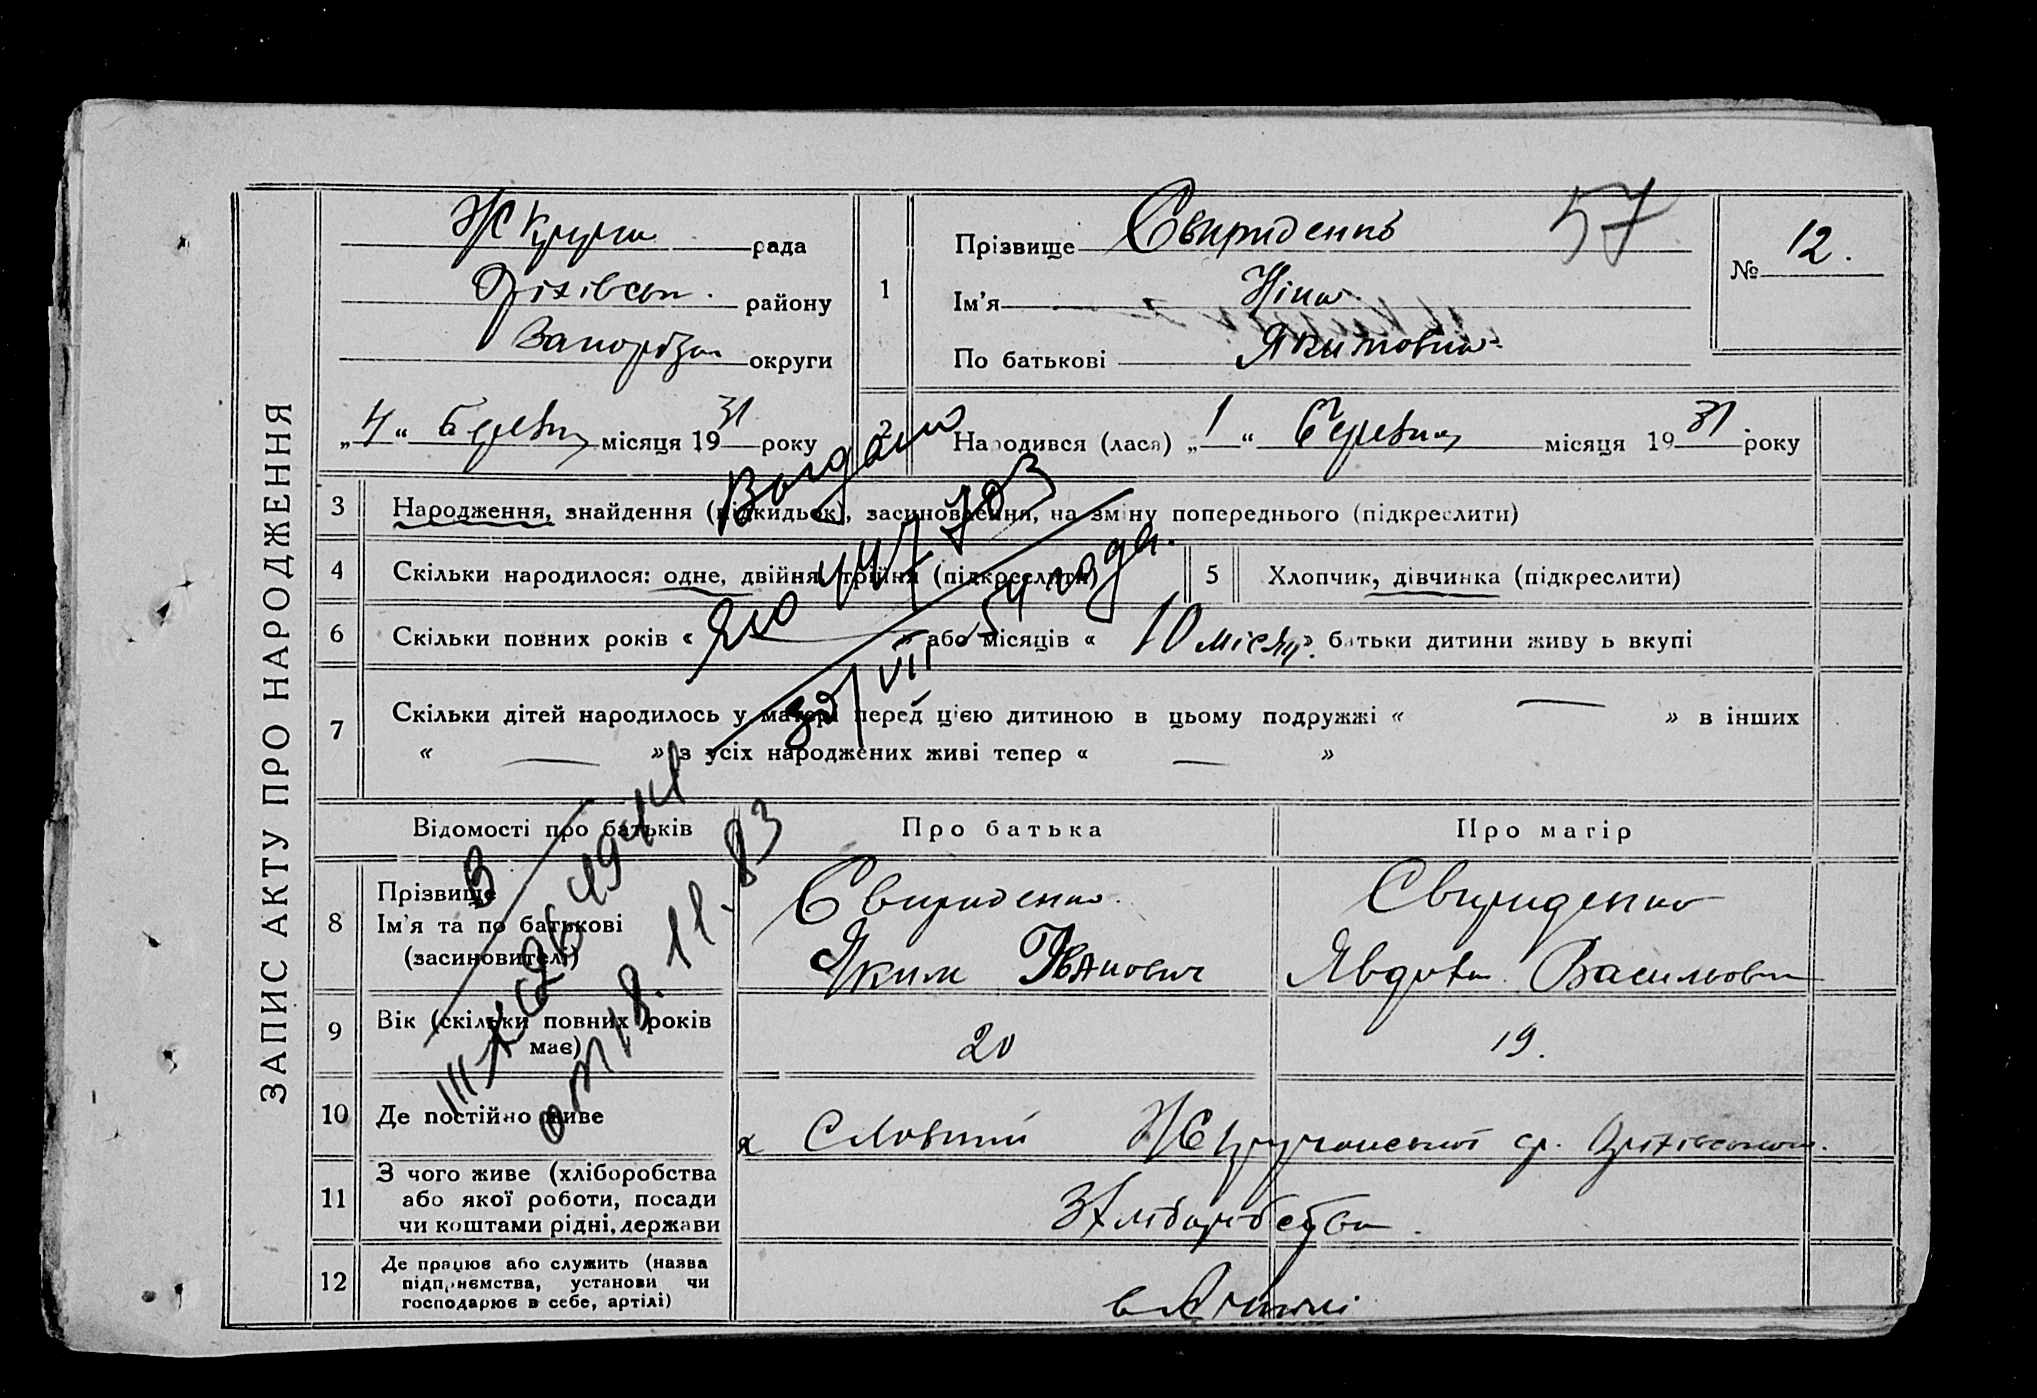 ЗАПИС АКТУ ПРО НАРОДЖЕННЯ
рада
Оріхівськ. району
Запорізьк округи
„4“ Березня місяця 1931 року
57
№ 12.
1
Прізвище Свириденко
Ім'я Ніна
По батькові Якимовна
2
Народився (лася) „1“ Березня місяця 1931 року
3 Народження, знайдення (підкидьок), засиновлення, на зміну попереднього (підкреслити)
4 Скільки народилося: одне, двійня, трійня (підкреслити)
5 Хлопчик, дівчинка (підкреслити)
6 Скільки повних років « — » або місяців « 10 місяц. » батьки дитини живуть вкупі
7 Скільки дітей народилось у матері перед цією дитиною в цьому подружжі « — » в інших
« — » з усіх народжених живі тепер « — »
Выдано
703
30/VII 54 года.
Відомості про батьків
Про батька
Про матір
8 Прізвище
Ім'я та по батькові
(засиновителі)
Свириденко
Яким Іванович
Свириденко
Явдоха Васильовна
9 Вік (скільки повних років
має)
20
19.
от 18.11.83
10 Де постійно живе
х Словний с/р. Оріхівського
11 З чого живе (хліборобства
або якої роботи, посади
чи коштами рідні, держави
З Хліборобства
12 Де працює або служить (назва
підприємства, установи чи
господарює в себе, артілі)
в Артілі